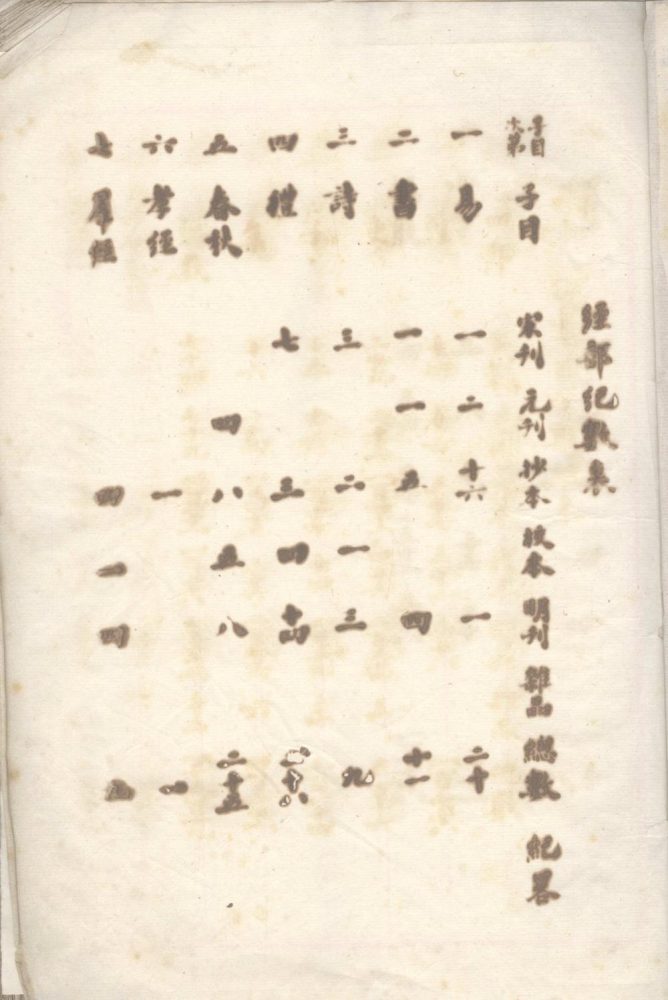 經部紀數表
子目次第 子目 宋刊 元刊 抄本 校本 明刊 雜品 總數 紀畧
一 易 一 二 十六 一 二十
二 書 一 一 五 四 十一
三 詩 三 二 一 三 九
四 禮 七 三 四 十四 二十八
五 春秋 四 八 五 八 二十五
六 孝經 一 一
七 羣經 四 一 四